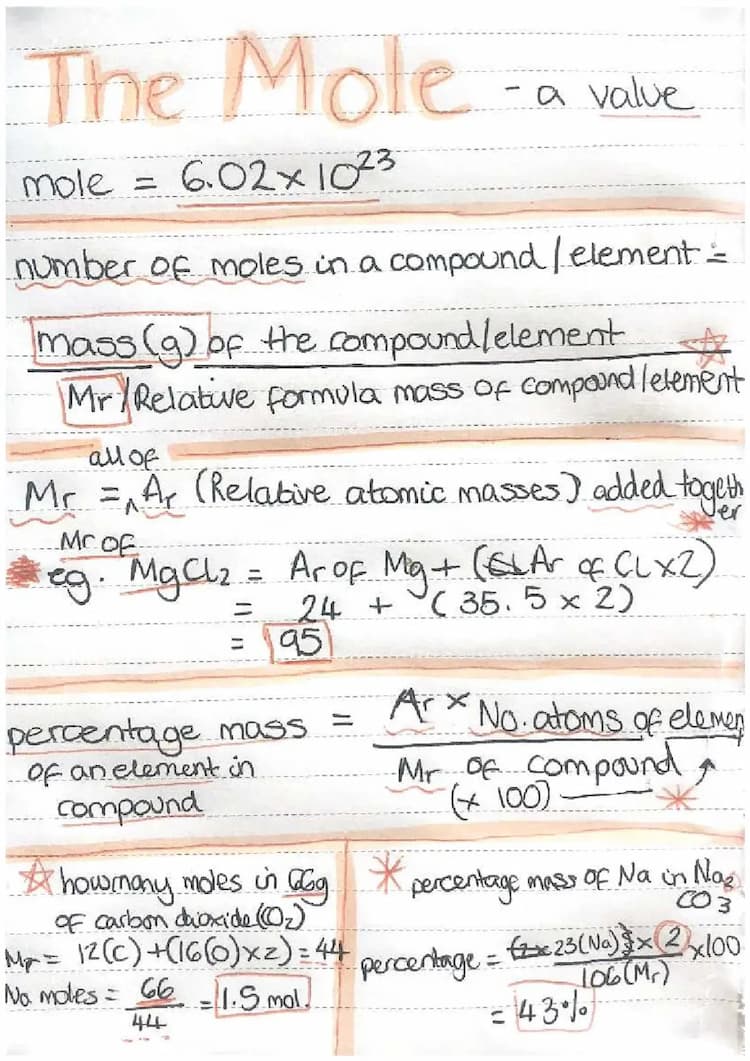 The Mole - a value
mole = 6.02 x 10²³
number of moles in a compound / element =
mass (g) of the compound/element
Mr / Relative formula mass of compound/element
all of
Mr = ^ Ar (Relative atomic masses) added togeth
er
Mr of
eg. MgCl₂ = Ar of Mg + (Ar of Cl x 2)
= 24 + (35.5 x 2)
= 95
percentage mass = Ar x No. atoms of elemen
of an element in
compound
Mr of compound
(x 100)
how many moles in 66g
of carbon dioxide (O₂)
Mr = 12(C) + (16(O) x 2) = 44
No moles = 66
44
= 1.5 mol.
percentage mass of Na in Na₂
CO₃
percentage = 23(Na) x 2 x 100
106 (Mr)
= 43%